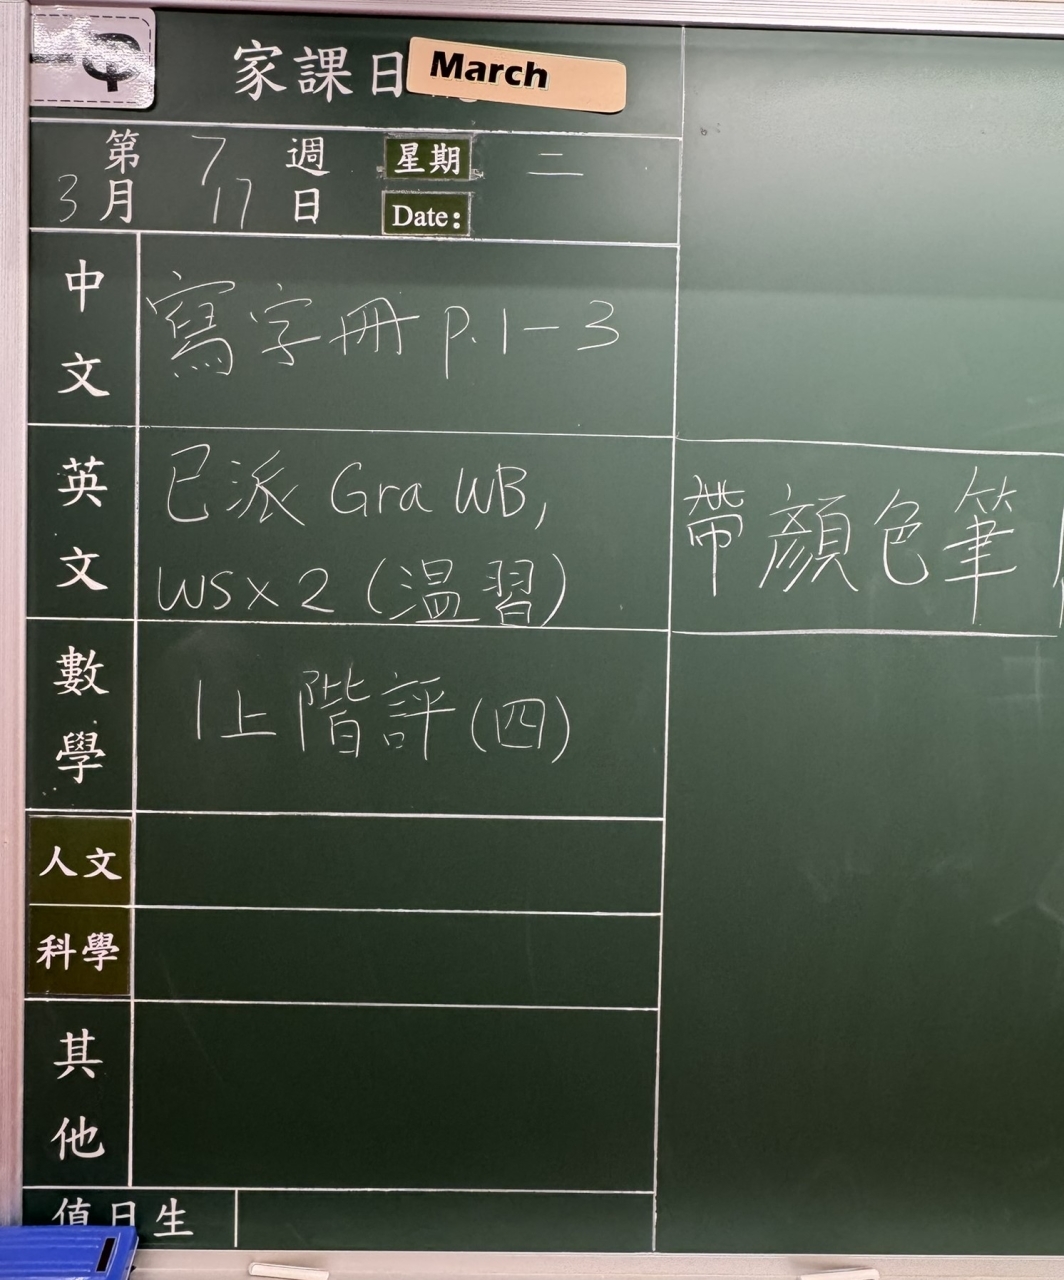 家課日
March
第 7 週 星期 二
3 月 17 日 Date:
中文 寫字冊 P.1-3
英文 已派 Gra WB,
WS x 2 (温習)
帶顏色筆
數學 1上階評(四)
人文
科學
其他
值日生